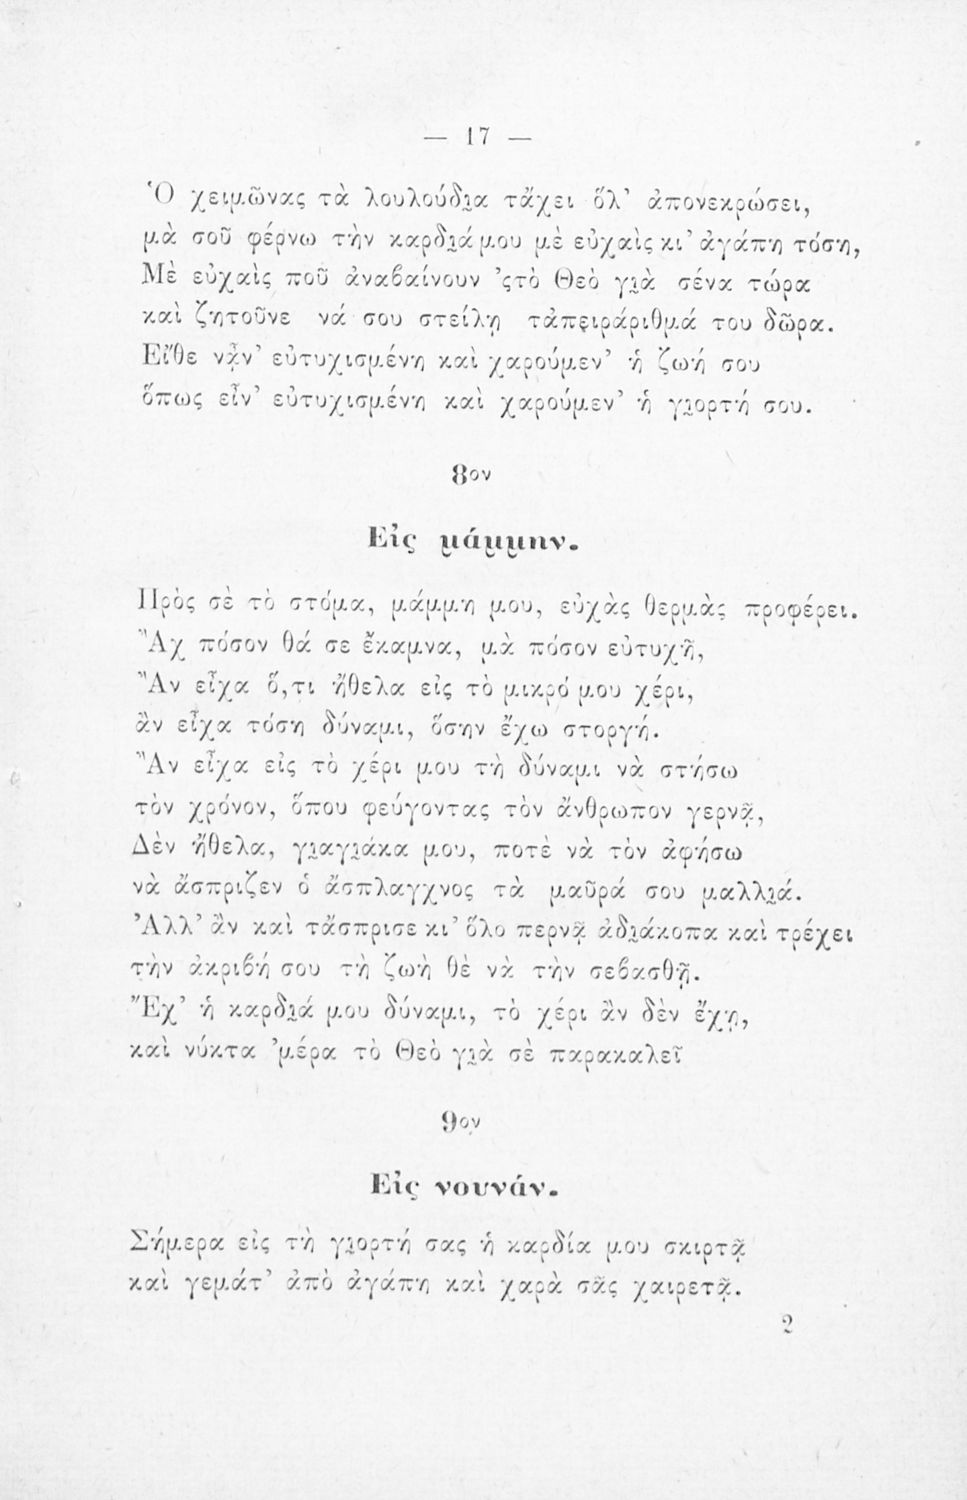 — 17 —
Ὁ χειμῶνας τὰ λουλούδι̯α τἄχει ὅλ’ ἀπονεκρώσει,
μὰ σοῦ φέρνω τὴν καρδι̯ά μου μὲ εὐχαὶς κι’ ἀγάπη τόση,
Μὲ εὐχαὶς ποῦ ἀναβαίνουν ’ςτὸ Θεὸ γι̯ὰ σένα τώρα
καὶ ζητοῦνε νά σου στείλῃ τἀπειράριθμά του δῶρα.
Εἴθε νᾆν’ εὐτυχισμένη καὶ χαρούμεν’ ἡ ζωή σου
ὅπως εἶν’ εὐτυχισμένη καὶ χαρούμεν’ ἡ γι̯ορτή σου.
8ον
Εἰς μάμμην.
Πρὸς σὲ τὸ στόμα, μάμμη μου, εὐχὰς θερμὰς προφέρει.
Ἂχ πόσον θά σε ἔκαμνα, μὰ πόσον εὐτυχῆ,
Ἂν εἶχα ὅ,τι ἤθελα εἰς τὸ μικρό μου χέρι,
ἂν εἶχα τόση δύναμι, ὅσην ἔχω στοργή.
Ἂν εἶχα εἰς τὸ χέρι μου τὴ δύναμι νὰ στήσω
τὸν χρόνον, ὅπου φεύγοντας τὸν ἄνθρωπον γερνᾷ,
Δὲν ἤθελα, γι̯αγι̯άκα μου, ποτὲ νὰ τὸν ἀφήσω
νὰ ἄσπριζεν ὁ ἄσπλαγχνος τὰ μαῦρά σου μαλλι̯ά.
Ἀλλ’ ἂν καὶ τἄσπρισε κι’ ὅλο περνᾷ ἀδι̯άκοπα καὶ τρέχει
τὴν ἀκριβή σου τὴ ζωὴ θὲ νὰ τὴν σεβασθῇ.
Ἔχ’ ἡ καρδι̯ά μου δύναμι, τὸ χέρι ἂν δὲν ἔχῃ,
καὶ νύκτα ’μέρα τὸ Θεὸ γι̯ὰ σὲ παρακαλεῖ
9ον
Εἰς νουνάν.
Σήμερα εἰς τὴ γι̯ορτή σας ἡ καρδία μου σκιρτᾷ
καὶ γεμάτ’ ἀπὸ ἀγάπη καὶ χαρὰ σᾶς χαιρετᾷ.
2